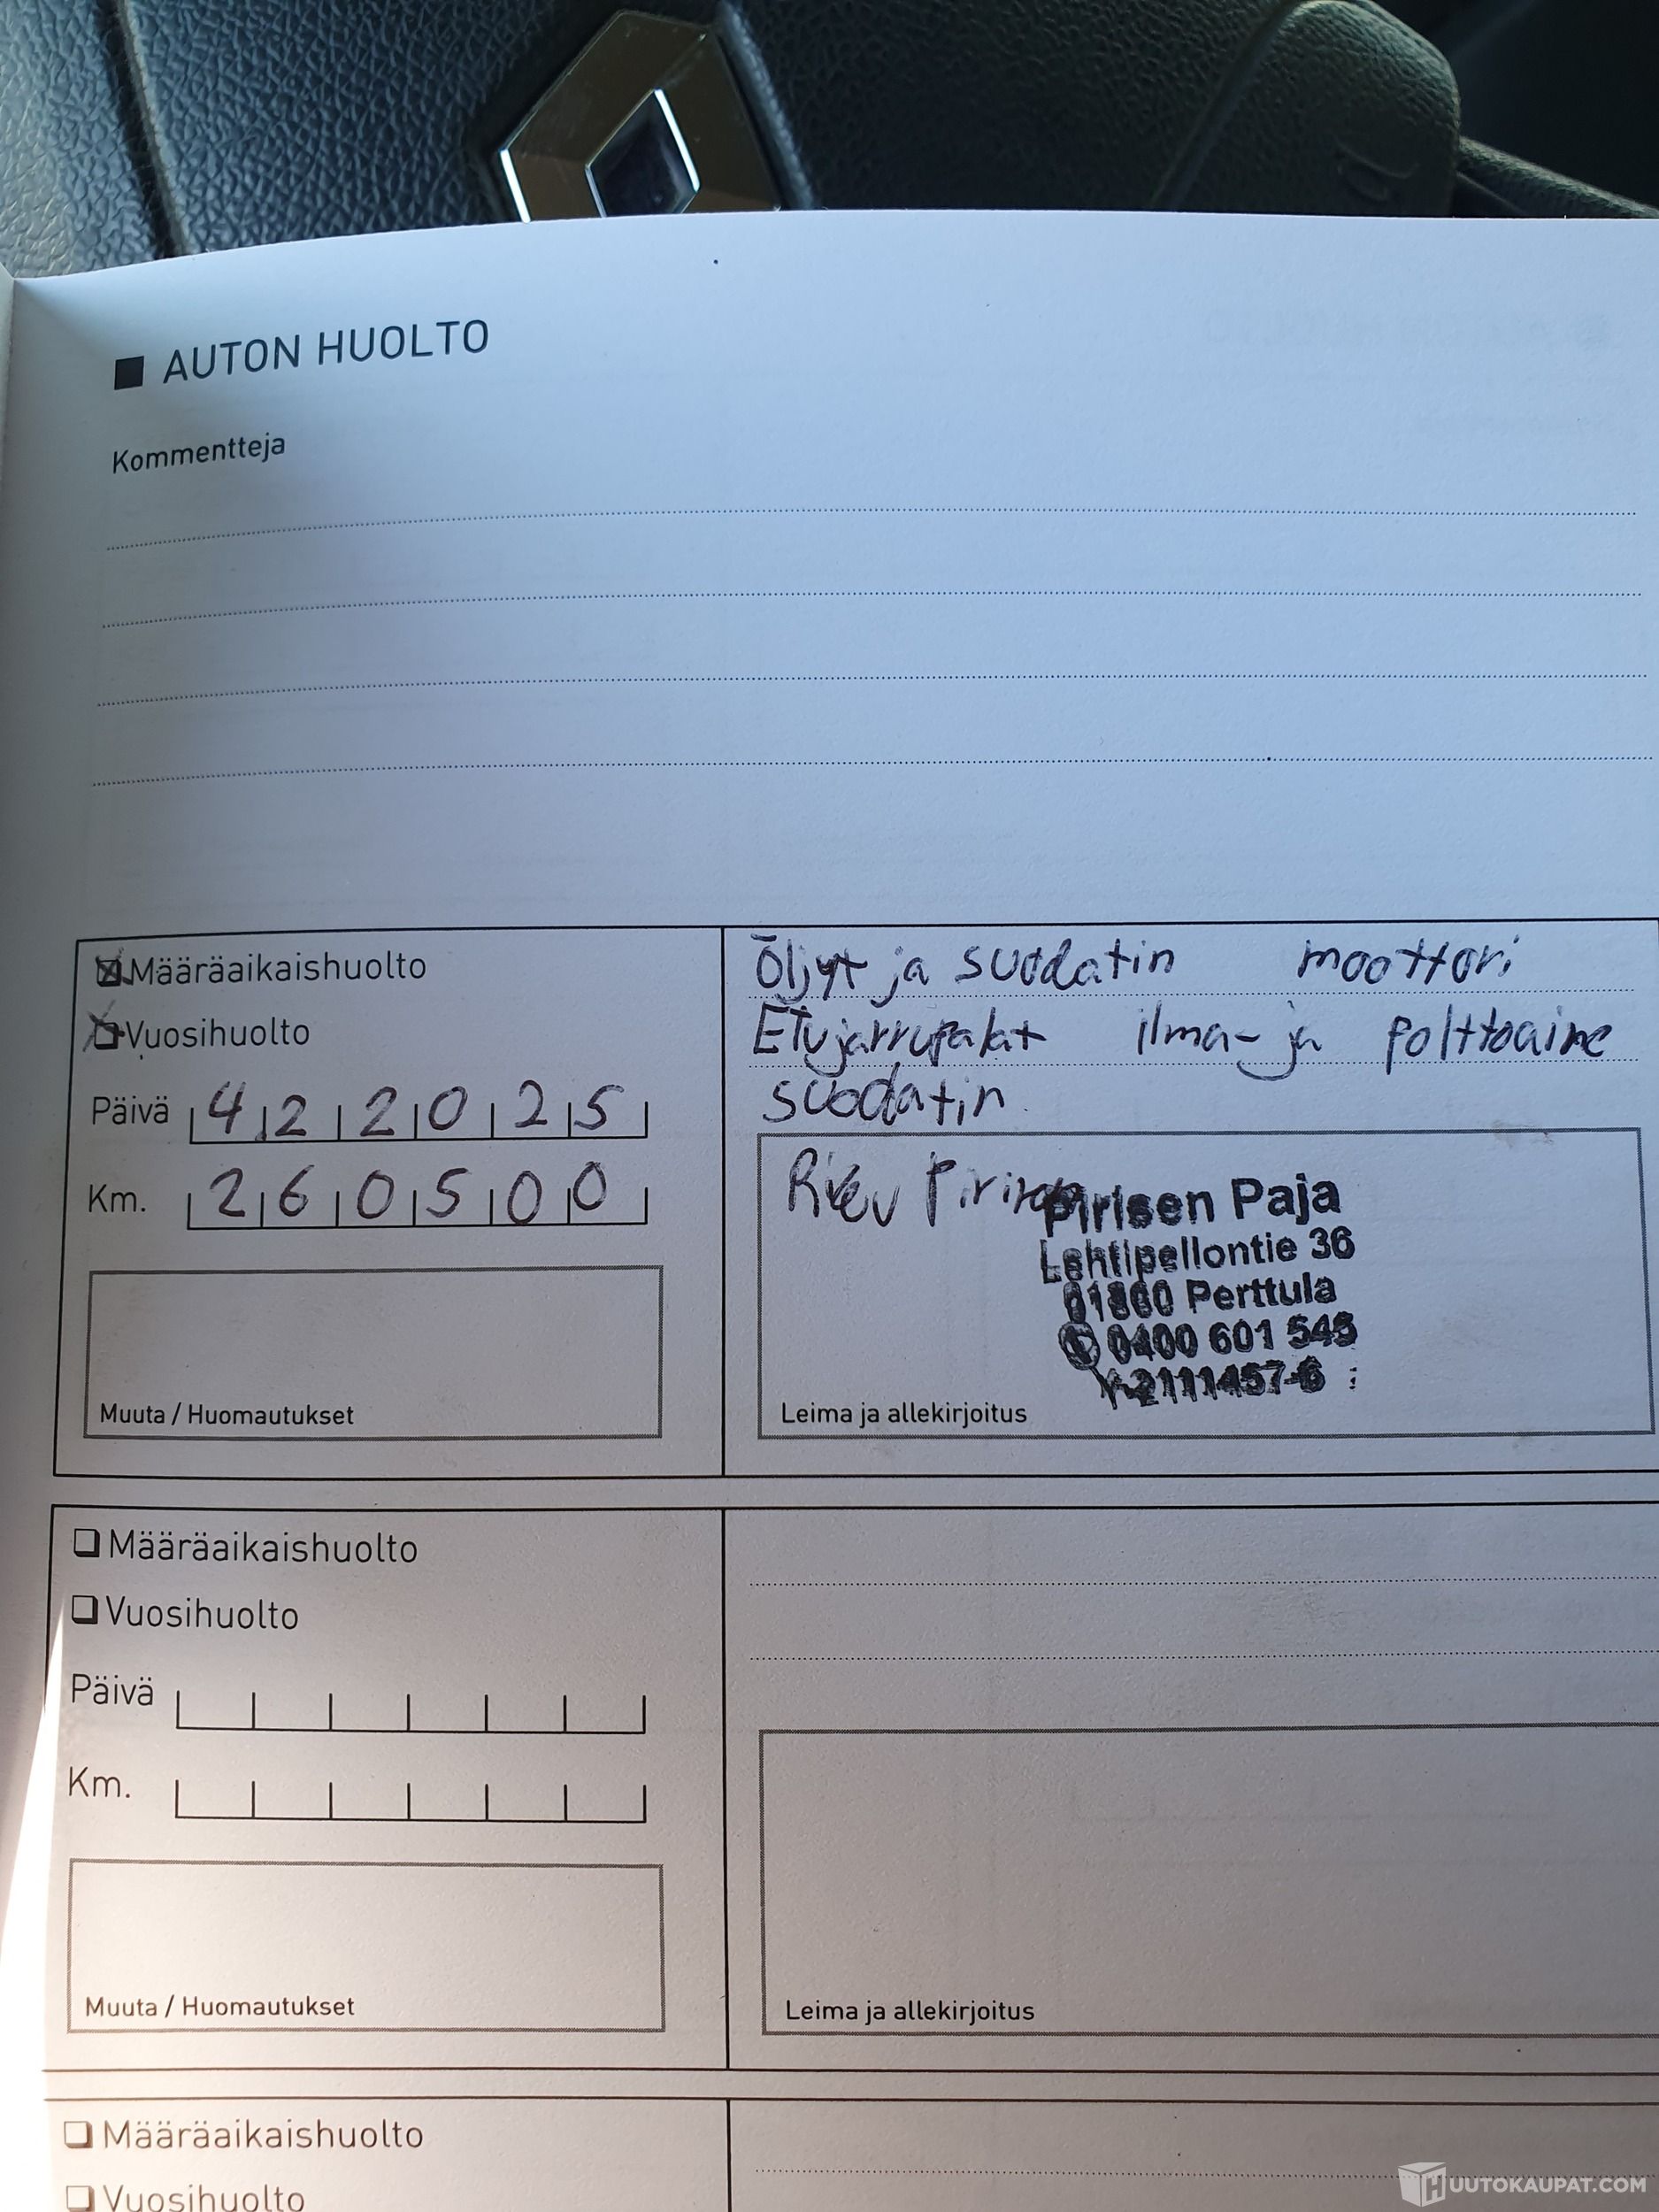 AUTON HUOLTO
Kommentteja
Määräaikaishuolto
Vuosihuolto
Päivä 4.2 2025
Km. 260500
Muuta / Huomautukset
Öljyt ja suodatin moottori
Etujarrupalat ilma- ja polttoaine
suodatin
Pirisen Paja
Lehtipellontie 36
01860 Perttula
0400 601 545
Y-2111457-6
Leima ja allekirjoitus
Määräaikaishuolto
Vuosihuolto
Päivä
Km.
Muuta / Huomautukset
Leima ja allekirjoitus
Määräaikaishuolto
Vuosihuolto
HUUTOKAUPAT.COM